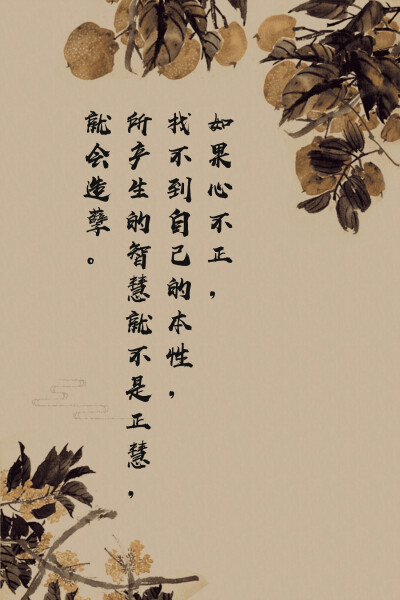 如果心不正，
找不到自己的本性，
所产生的智慧就不是正慧，
就会造孽。